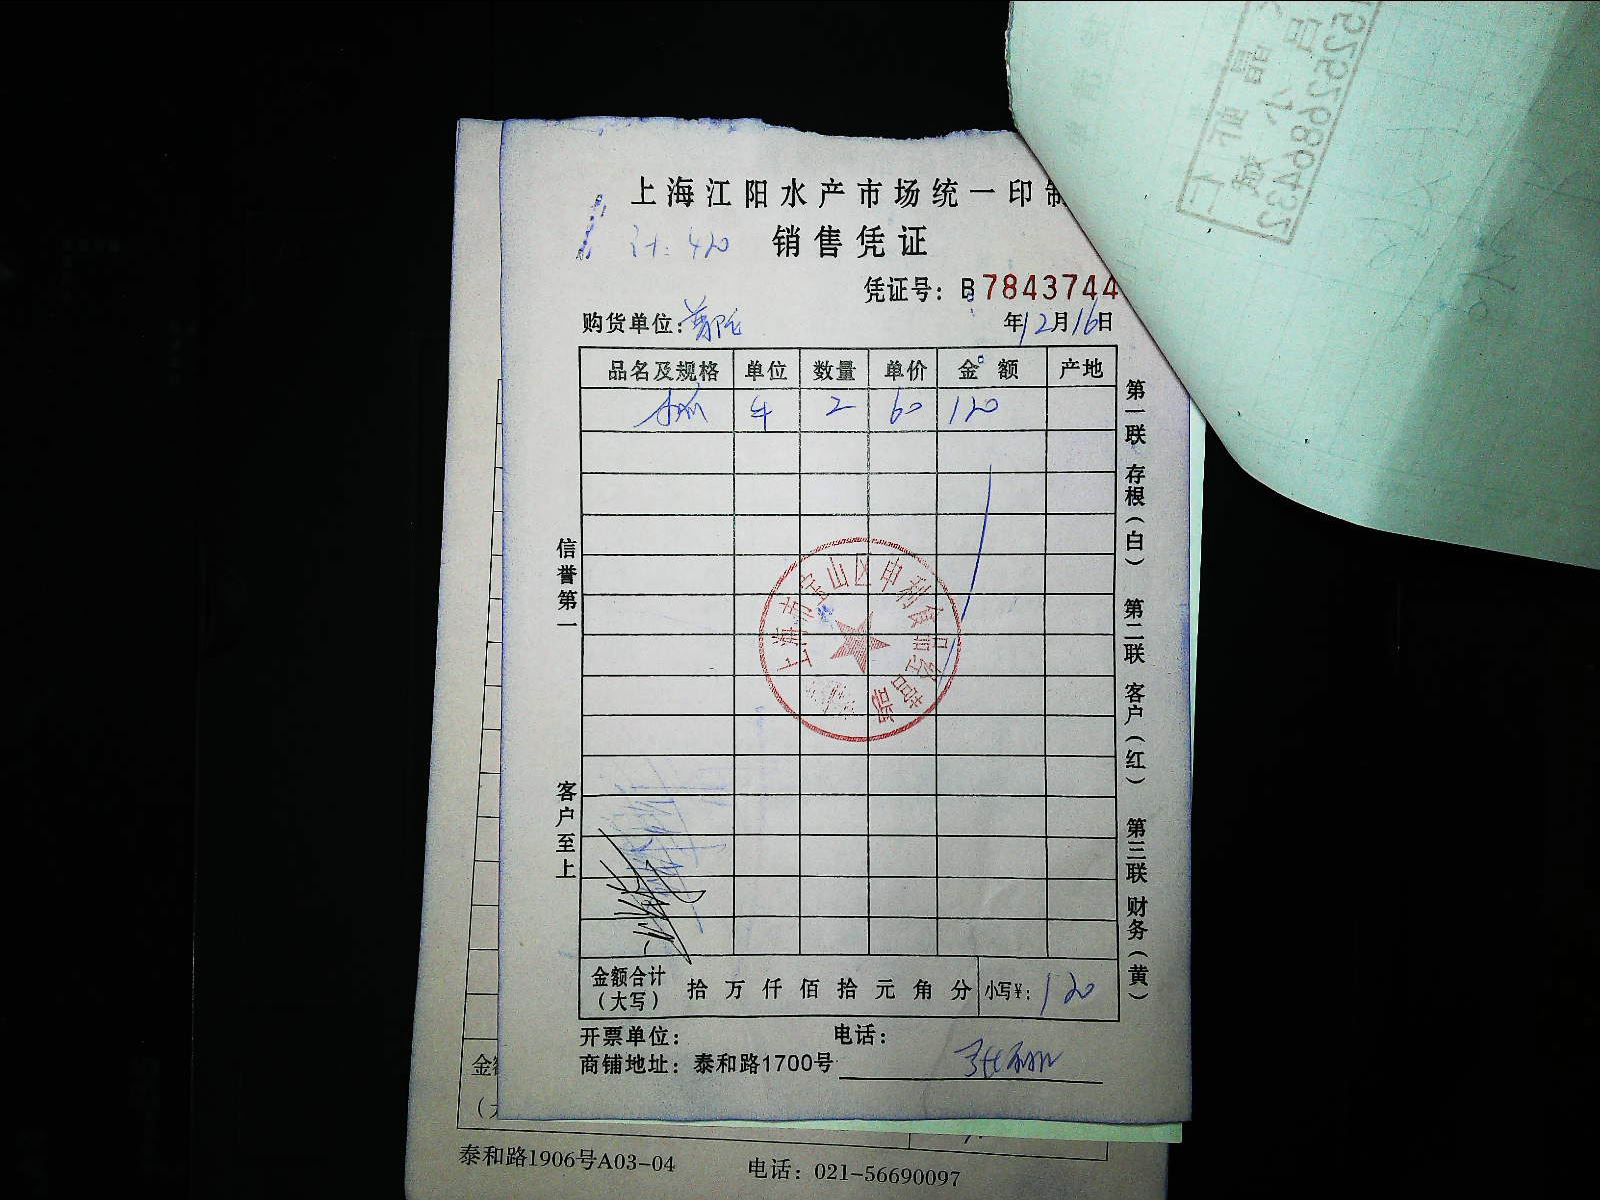 上海江阳水产市场统一印制
计:420
销售凭证
凭证号:B7843744
购货单位:
年12月16日
品名及规格 单位 数量 单价 金额 产地
2 60 120
第一联 存根(白) 第二联 客户(红) 第三联 财务(黄)
信誉第一
客户至上
上海市宝山区申利食品经营部
金额合计(大写) 拾万仟佰拾元角分 小写¥:120
开票单位: 电话:
商铺地址:泰和路1700号
泰和路1906号A03-04 电话:021-56690097
15252686432